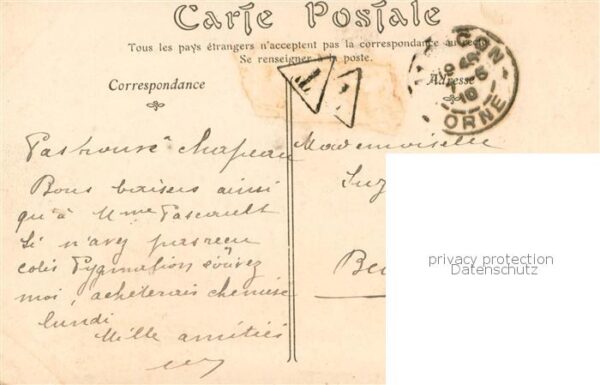 Carte Postale
Tous les pays étrangers n'acceptent pas la correspondance au recto
Se renseigner à la poste.
Correspondance
Adresse
T
T
ÇON
5
10
ORNE
Pas trouvé chapeau
Bons baisers ainsi
qu'à Mme Pascault
Si n'avez pas reçu
colis Pygmalion
moi, achèterais chemise
lundi
Mille amitiés
Mademoiselle
Suz
privacy protection
Datenschutz